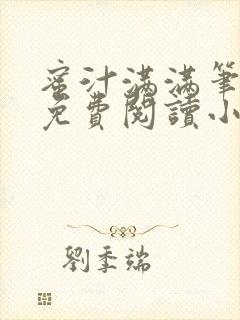 蜜汁满满筆
免費閱讀小
劉季端